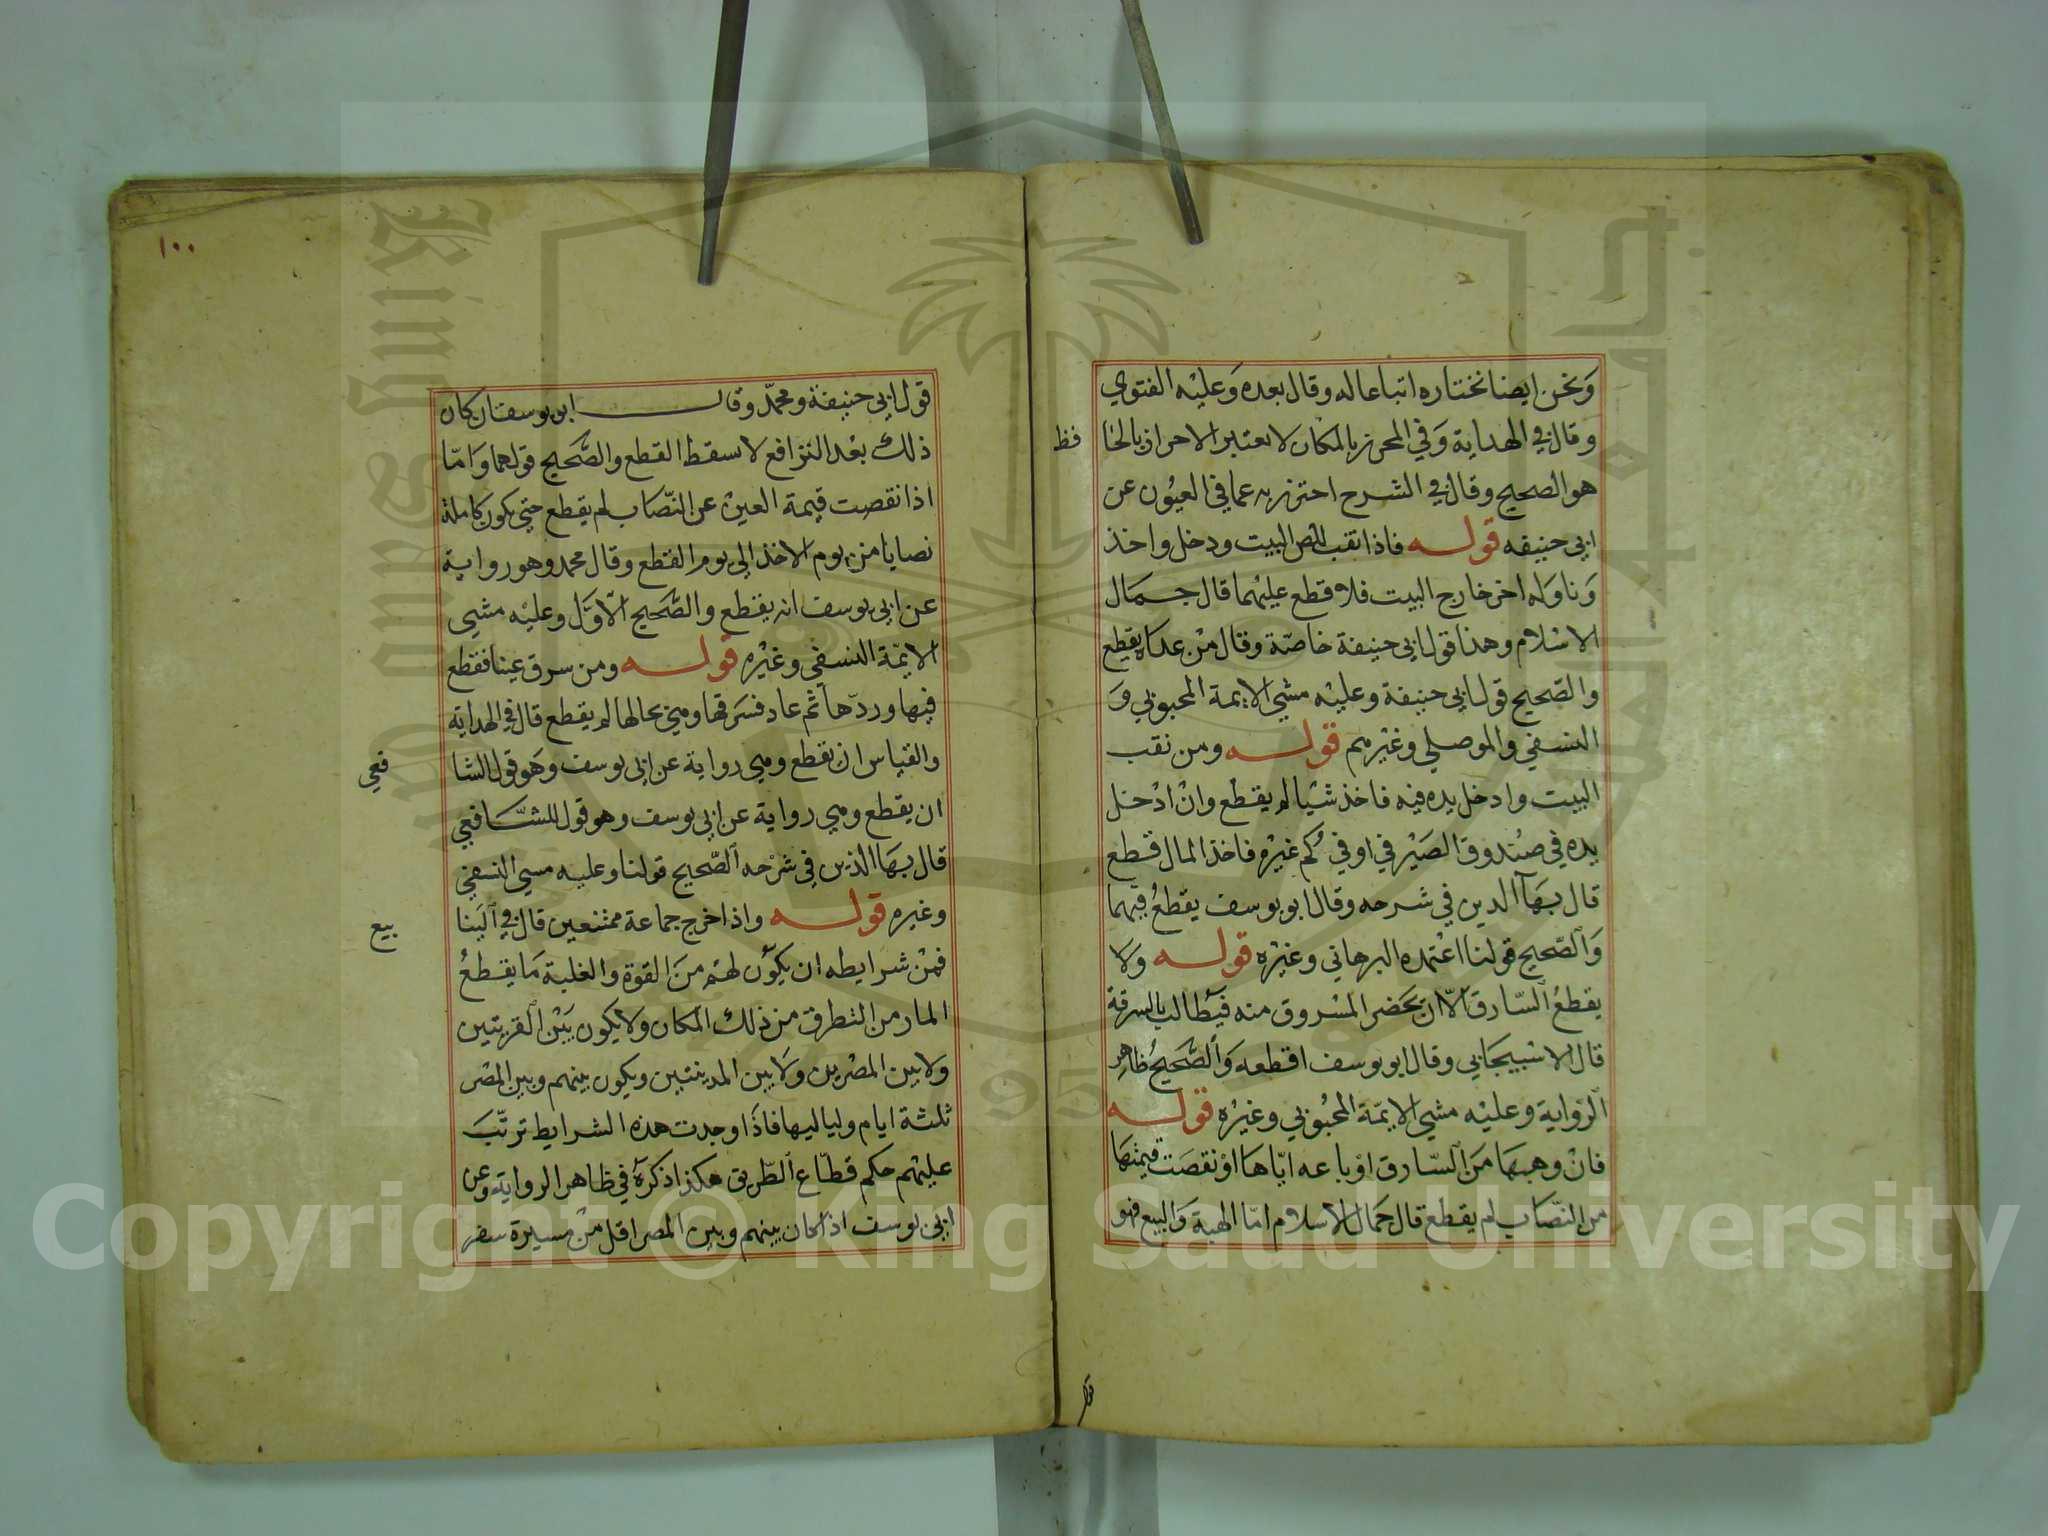 ونحن ايضا نختاره اتباعا له وقال بعده وعليه الفتوي
وقال في الهداية وفي المحرز بالمكان لا يعتبر الاحراز بالحا
فظ
هو الصحيح وقال في الشرح احترز به عما في العيون عن
ابي حنيفه قوله فاذا نقب اللص البيت ودخل واخذ
وناوله اخر خارج البيت فلا قطع عليهما قال جمال
الاسلام وهذا قول ابي حنيفة خاصة وقال من عداه يقطع
والصحيح قول ابي حنيفة وعليه مشي الايمة المحبوبي و
النسفي والموصلي وغيرهم قوله ومن نقب
البيت وادخل يده فيه فاخذ شيا لم يقطع وان ادخل
يده في صندوق الصيرفي او في كم غيره فاخذ المال قطع
قال بهآ الدين في شرحه وقال ابو يوسف يقطع فيهما
والصحيح قولنا اعتمده البرهاني وغيره قوله ولا
يقطع السارق الا ان يحضر المسروق منه فيطالب بالسرقة
قال الاسبيجابي وقال ابو يوسف اقطعه والصحيح ظاهر
الرواية وعليه مشي الايمة المحبوبي وغيره قوله
فان وهبها من السارق او باعه اياها او نقصت قيمتها
من النصاب لم يقطع قال جمال الاسلام اما الهبة والبيع فهو
١٠٠
قول ابي حنيفة ومحمد وقال ابو يوسف ان كان
ذلك بعد الترافع لا يسقط القطع والصحيح قولهما واما
اذا نقصت قيمة العين عن النصاب لم يقطع حتي يكون كاملة
نصابا من يوم الاخذ الي يوم القطع وقال محمد وهو رواية
عن ابي يوسف انه يقطع والصحيح الاول وعليه مشي
الايمة النسفي وغيره قوله ومن سرق عينا فقطع
فيها وردها ثم عاد فسرقها وهي بحالها لم يقطع قال في الهداية
والقياس ان يقطع وهي رواية عن ابي يوسف وهو قول الشا
فعي
ان يقطع وهي رواية عن ابي يوسف وهو قول للشافعي
قال بهآ الدين في شرحه الصحيح قولنا وعليه مسي النسفي
وغيره قوله واذا خرج جماعة ممتنعين قال في الينا
بيع
فمن شرايطه ان يكون لهم من القوة والغلبة ما يقطع
المار من التطرق من ذلك المكان ولا يكون بين القريتين
ولا بين المصرين ولا بين المدينتين ويكون بينهم وبين المصر
ثلثة ايام ولياليها فاذا وجدت هذه الشرايط ترتب
عليهم حكم قطاع الطريق هكذا ذكره في ظاهر الرواية وعن
ابي يوسف اذا كان بينهم وبين المصر اقل من مسيرة سفر
Copyright © King Saud University